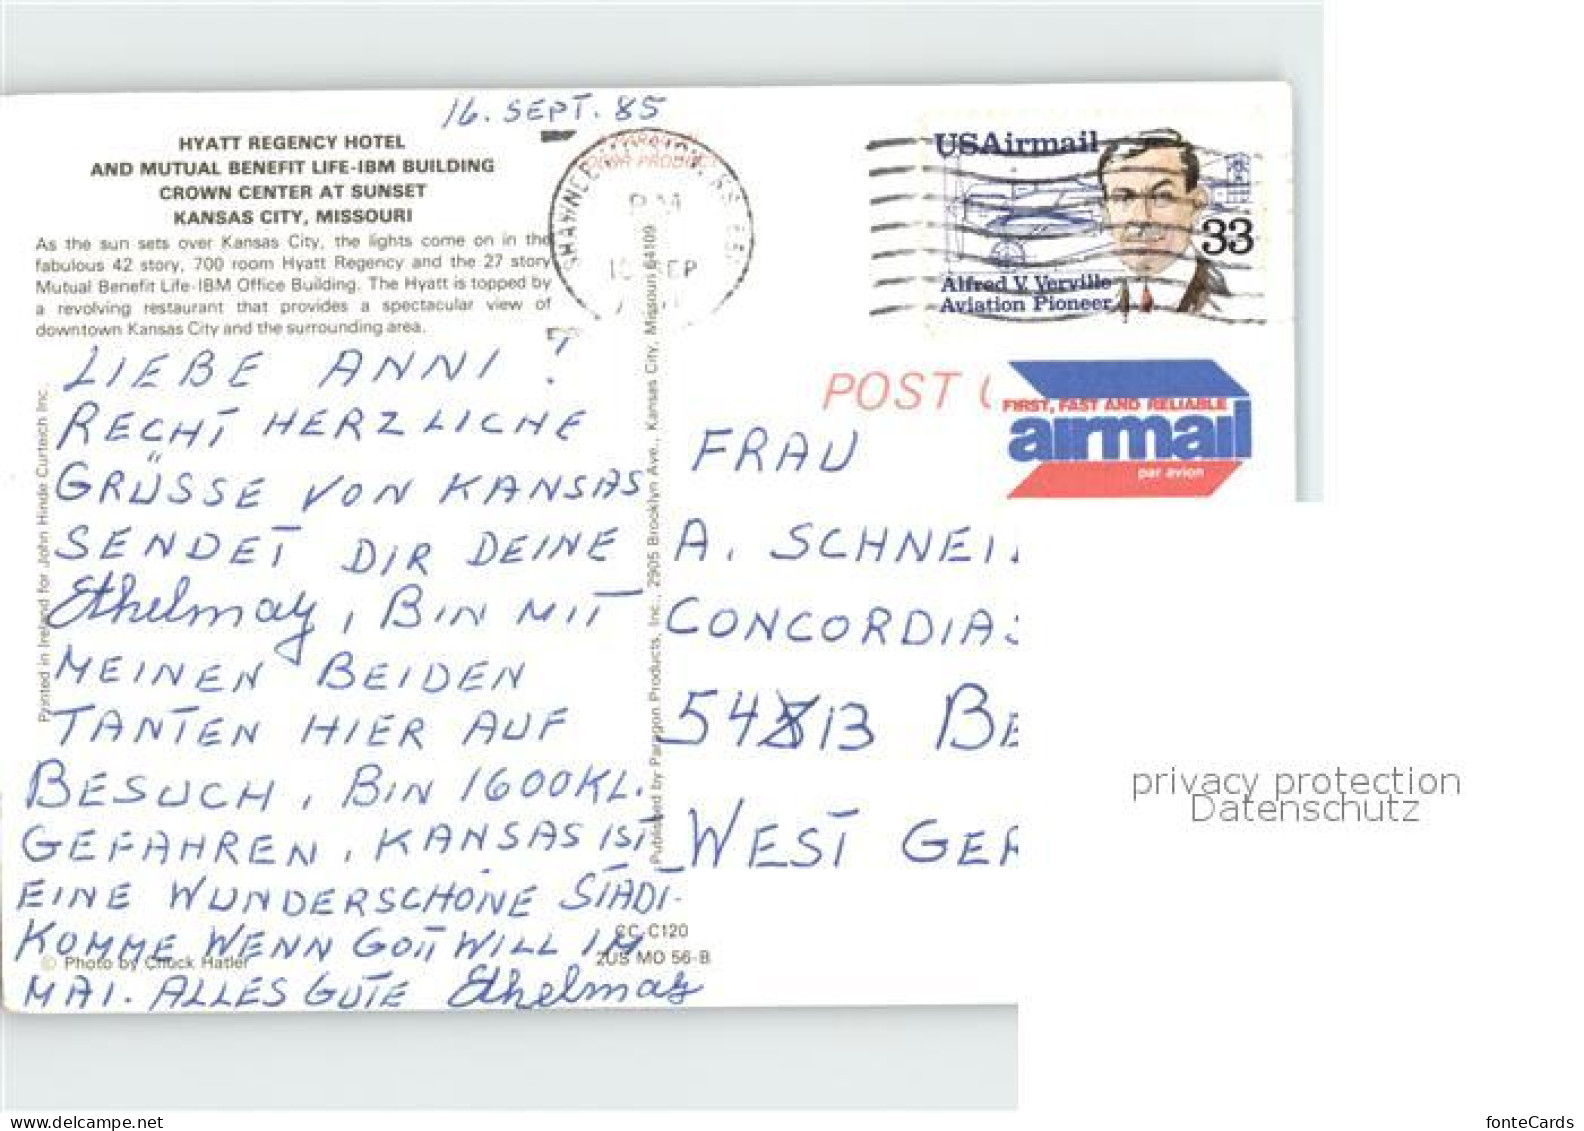 16. SEPT. 85
HYATT REGENCY HOTEL
AND MUTUAL BENEFIT LIFE-IBM BUILDING
CROWN CENTER AT SUNSET
KANSAS CITY, MISSOURI
As the sun sets over Kansas City, the lights come on in the
fabulous 42 story, 700 room Hyatt Regency and the 27 story
Mutual Benefit Life-IBM Office Building. The Hyatt is topped by
a revolving restaurant that provides a spectacular view of
downtown Kansas City and the surrounding area.
LIEBE ANNI!
RECHT HERZLICHE
GRÜSSE VON KANSAS
SENDET DIR DEINE
Ethelmay, BIN MIT
MEINEN BEIDEN
TANTEN HIER AUF
BESUCH, BIN 1600KL.
GEFAHREN, KANSAS IST
EINE WUNDERSCHÖNE STADT.
KOMME WENN GOTT WILL IM
MAI. ALLES GUTE Ethelmay
© Photo by Chuck Hatler
Printed in Ireland for John Hinde Curteich Inc.
Published by Paragon Products, Inc., 2905 Brooklyn Ave., Kansas City, Missouri 64109
CC-C120
2US MO 56-B
SEP
USAirmail
33
Alfred V. Verville
Aviation Pioneer
POST
FIRST, FAST AND RELIABLE
airmail
par avion
FRAU
A. SCHNEI
CONCORDIAS
5413 BE
WEST GER
privacy protection
Datenschutz
www.delcampe.net
fonteCards